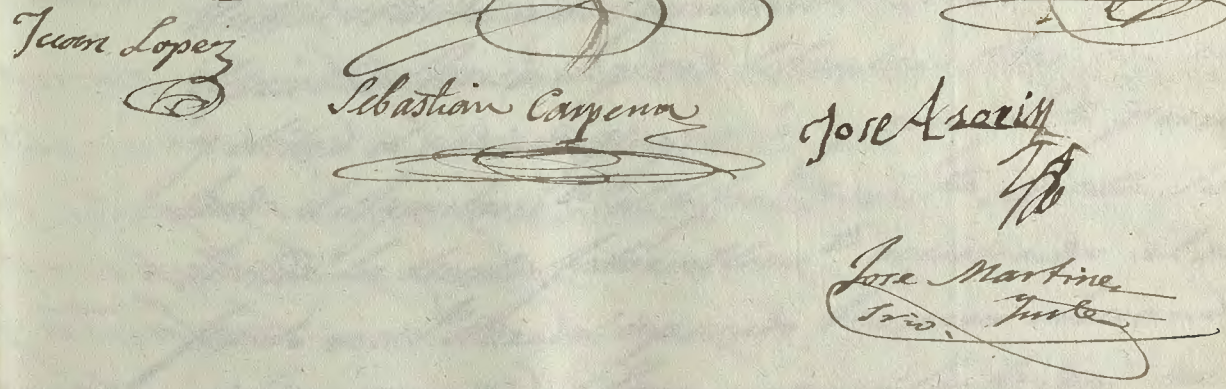 Juan Lopez
Sebastian Carpena
Jose Azorin
Jose Martinez
Srio.